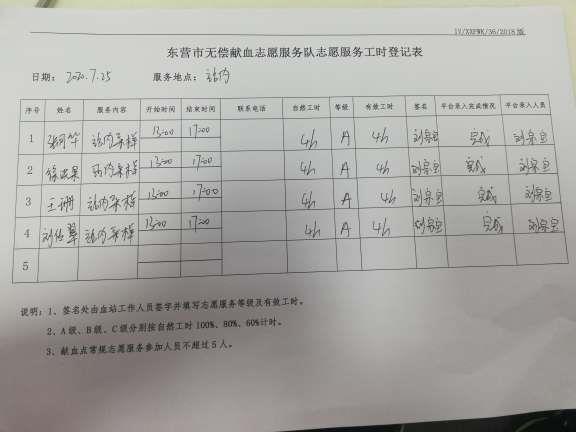 IV/XXFWK/36/2018版
东营市无偿献血志愿服务队志愿服务工时登记表
日期： 2020.7.25 服务地点： 站内
序号 姓名 服务内容 开始时间 结束时间 联系电话 自然工时 等级 有效工时 签名 平台录入完成情况 平台录入人员
1 站内采样 13:00 17:00 4h A 4h 完成
2 站内采样 13:00 17:00 4h A 4h 完成
3 王珊 站内采样 13:00 17:00 4h A 4h 完成
4 站内采样 13:00 17:00 4h A 4h 完成
5
说明：1、签名处由血站工作人员签字并填写志愿服务等级及有效工时。
2、A级、B级、C级分别按自然工时100%、80%、60%计时。
3、献血点常规志愿服务参加人员不超过5人。